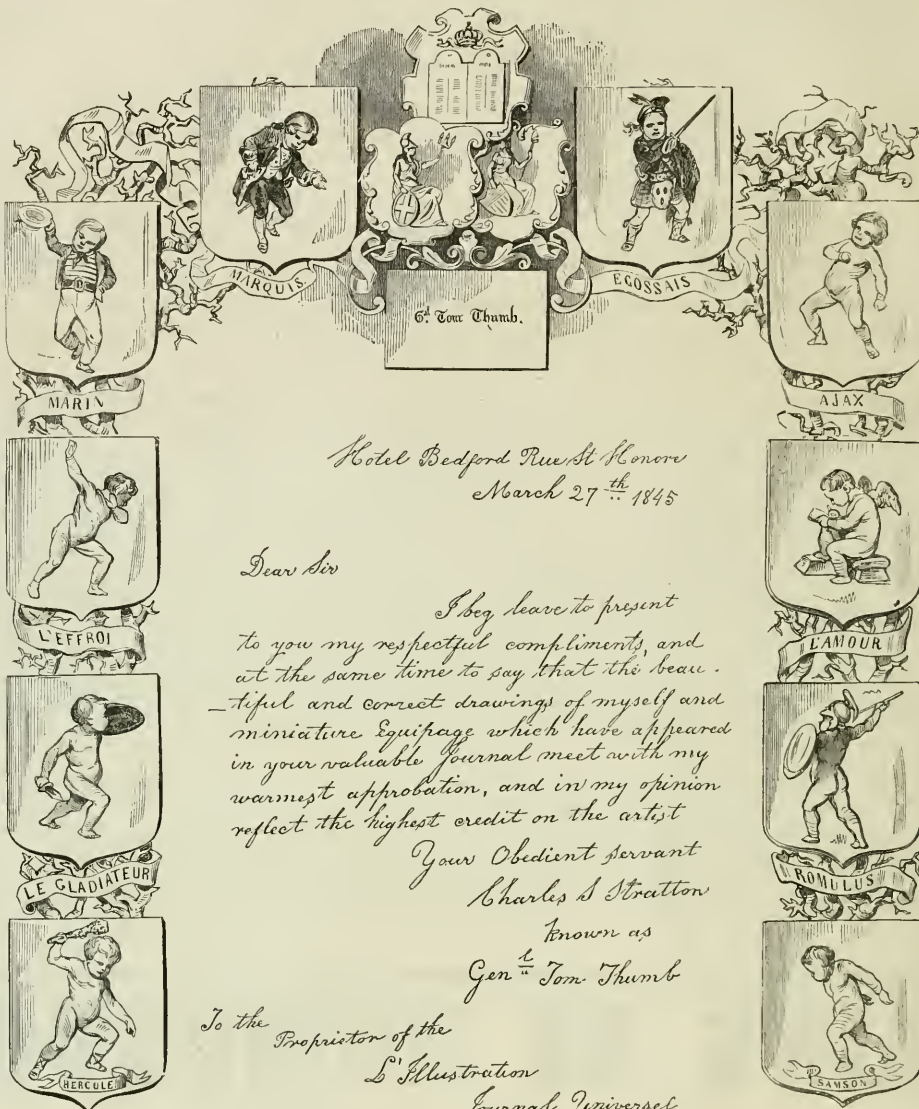 MARQUIS
ECOSSAIS
Gᵈ Tom Thumb.
MARIN
AJAX
L'EFFROI
L'AMOUR
LE GLADIATEUR
ROMULUS
HERCULE
SAMSON
Hotel Bedford Rue St Honore
March 27th 1845
Dear Sir
I beg leave to present
to you my respectful compliments, and
at the same time to say that the beau-
-tiful and correct drawings of myself and
miniature Equipage which have appeared
in your valuable Journal meet with my
warmest approbation, and in my opinion
reflect the highest credit on the artist
Your Obedient servant
Charles S Stratton
known as
Genl Tom Thumb
To the
Proprietor of the
L'Illustration
Journal Universel